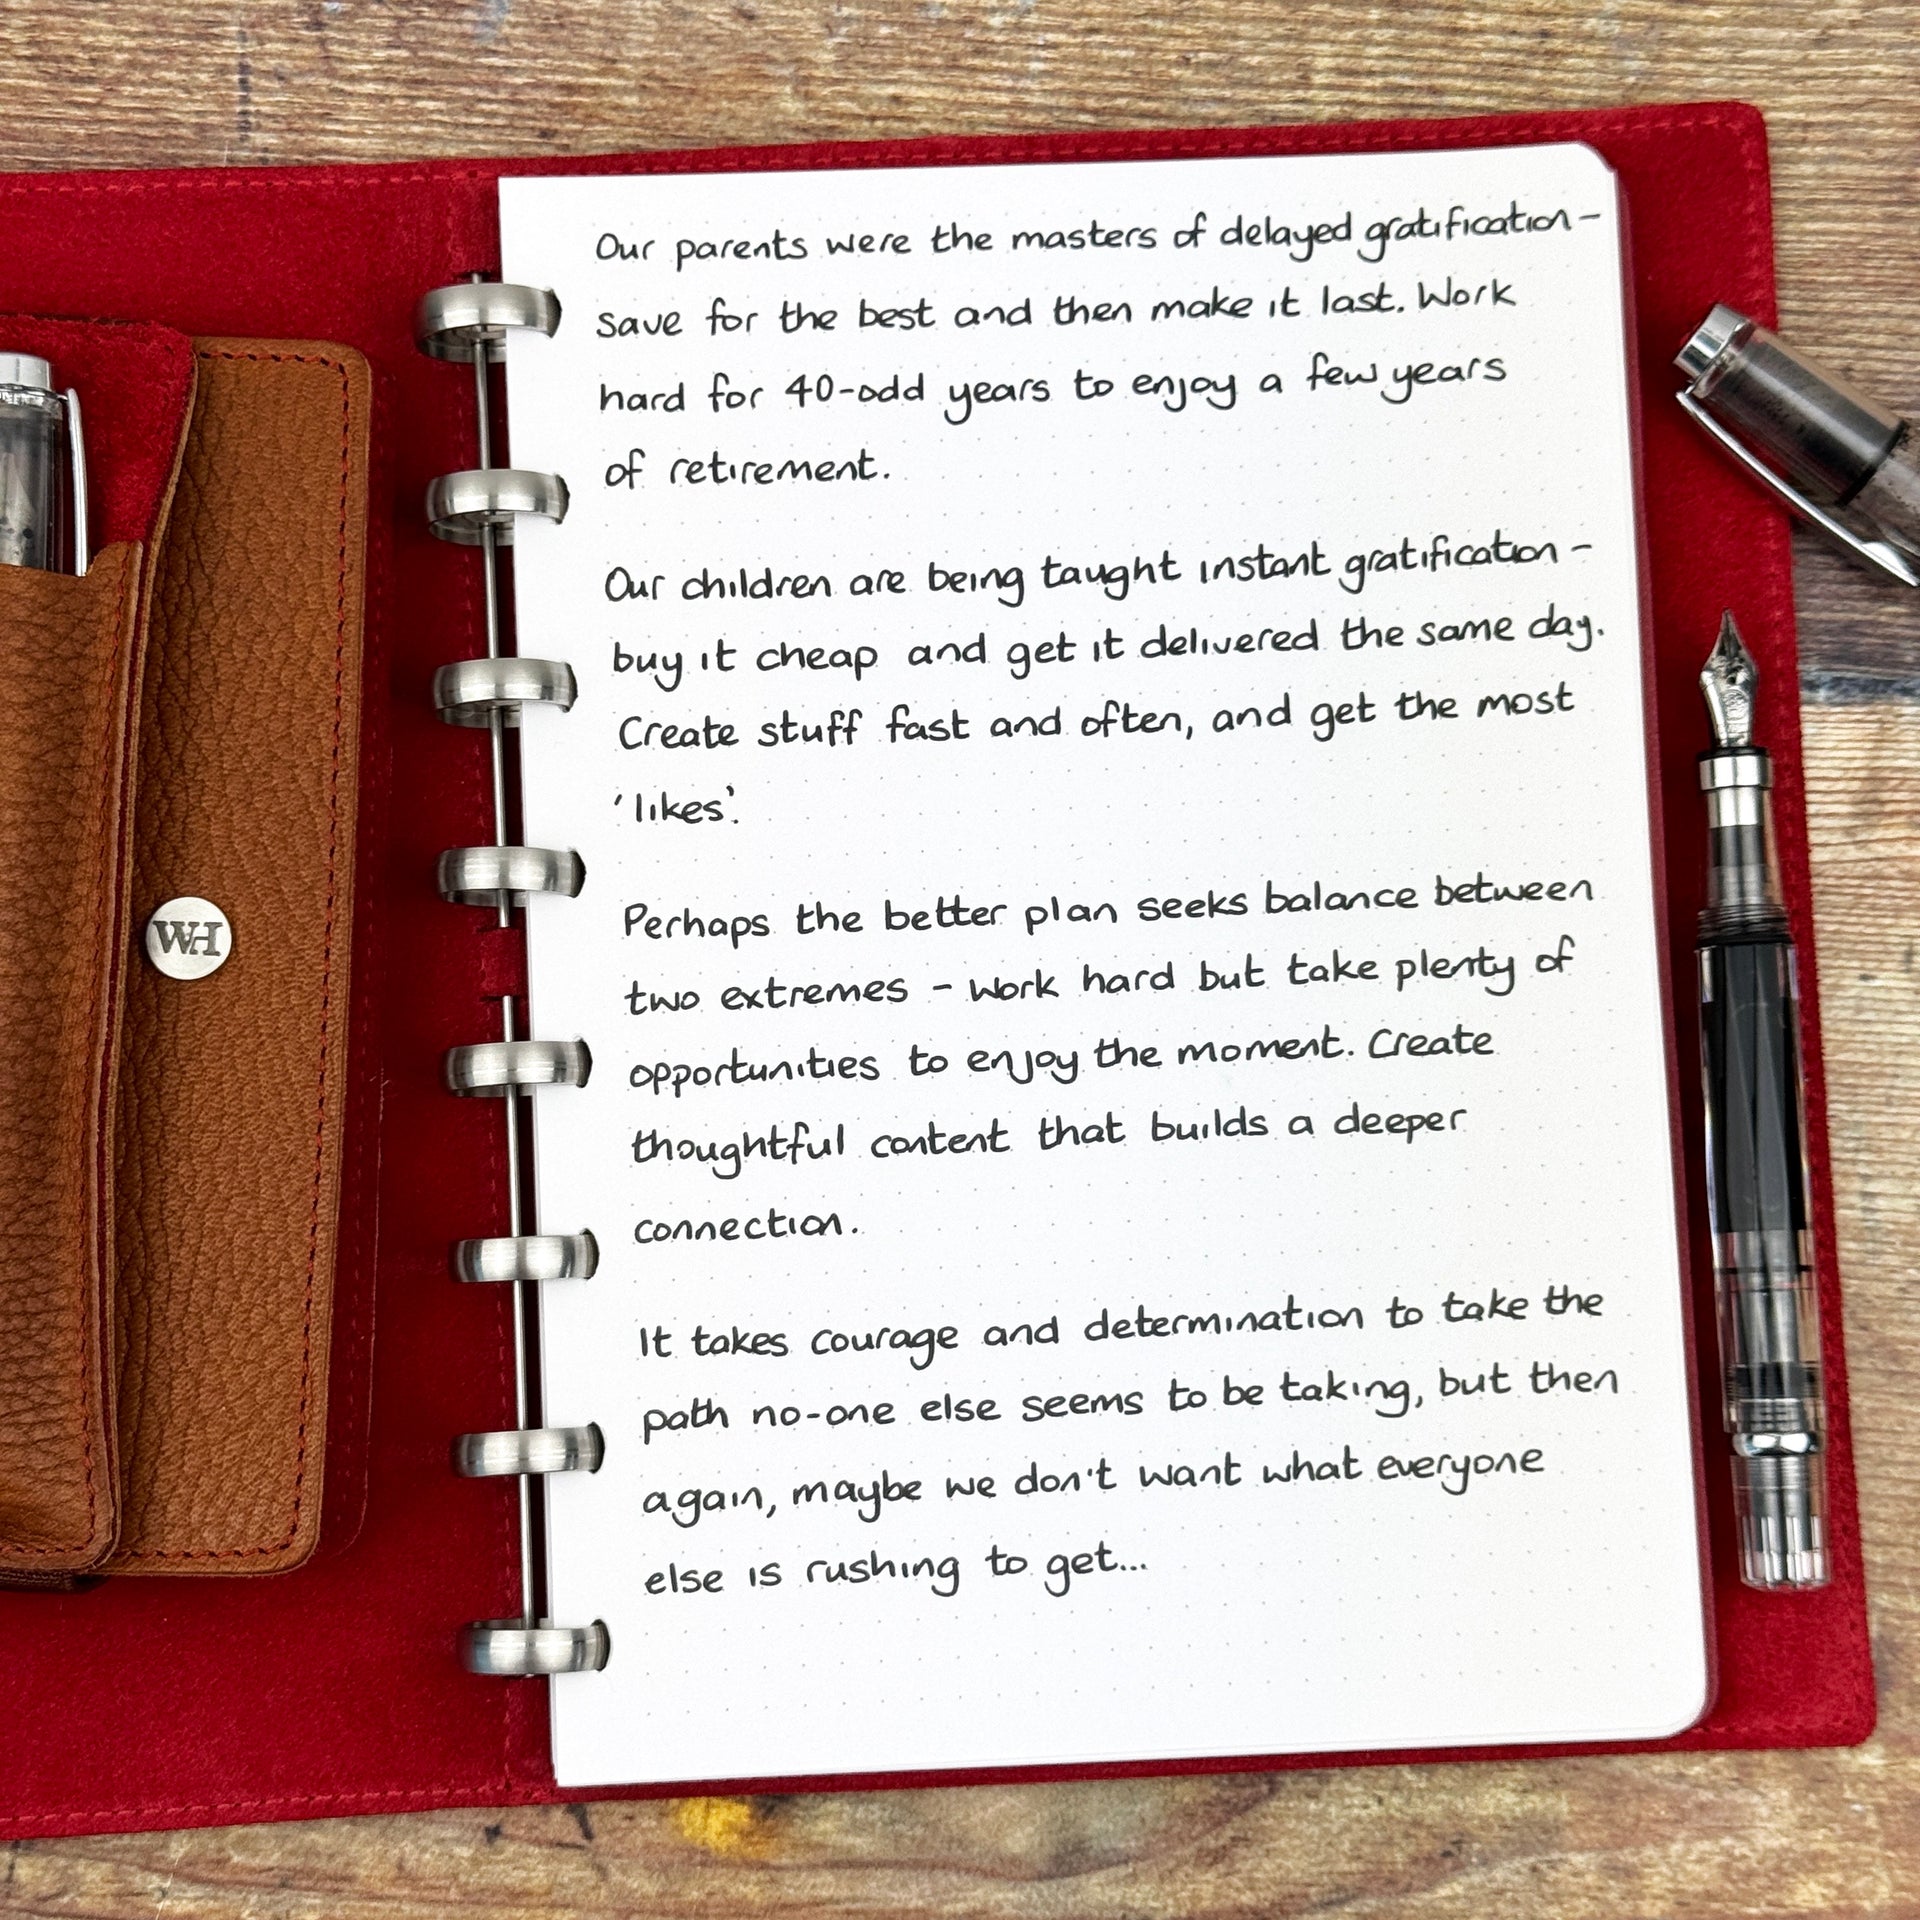 Our parents were the masters of delayed gratification -
save for the best and then make it last. Work
hard for 40-odd years to enjoy a few years
of retirement.
Our children are being taught instant gratification -
buy it cheap and get it delivered the same day.
Create stuff fast and often, and get the most
'likes'.
Perhaps the better plan seeks balance between
two extremes - work hard but take plenty of
opportunities to enjoy the moment. Create
thoughtful content that builds a deeper
connection.
It takes courage and determination to take the
path no-one else seems to be taking, but then
again, maybe we don't want what everyone
else is rushing to get...
WH